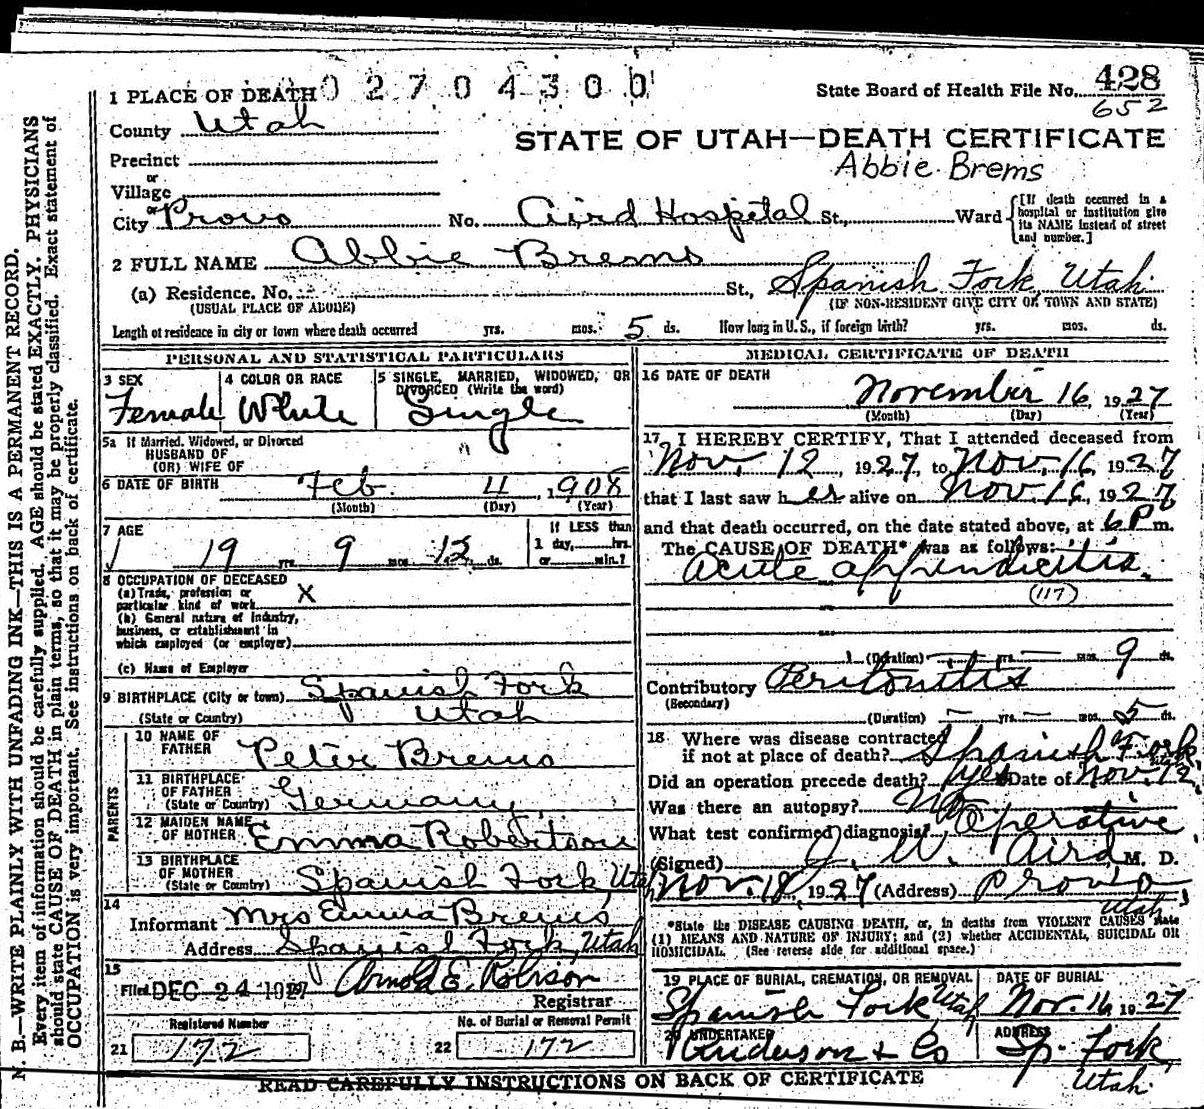 02704300
1 PLACE OF DEATH
State Board of Health File No. 428
652
County Utah
STATE OF UTAH—DEATH CERTIFICATE
Precinct
Abbie Brems
or
Village
or
City Provo No. Aird Hospital St., Ward [If death occurred in a hospital or institution give its NAME instead of street and number.]
2 FULL NAME Abbie Brems
(a) Residence. No. St., Spanish Fork, Utah.
(USUAL PLACE OF ABODE) (IF NON-RESIDENT GIVE CITY OR TOWN AND STATE)
Length of residence in city or town where death occurred yrs. mos. 5 ds. How long in U.S., if foreign birth? yrs. mos. ds.
PERSONAL AND STATISTICAL PARTICULARS
3 SEX Female
4 COLOR OR RACE White
5 SINGLE, MARRIED, WIDOWED, OR DIVORCED (Write the word) Single
5a If Married, Widowed, or Divorced
HUSBAND OF
(OR) WIFE OF
6 DATE OF BIRTH Feb. 4, 1908
(Month) (Day) (Year)
7 AGE 19 yrs. 9 mos. 12 ds.
If LESS than
1 day, hrs.
or min.?
8 OCCUPATION OF DECEASED
(a) Trade, profession or
particular kind of work X
(b) General nature of industry,
business, or establishment in
which employed (or employer)
(c) Name of Employer
9 BIRTHPLACE (City or town) Spanish Fork
(State or Country) Utah
PARENTS
10 NAME OF
FATHER Peter Brems
11 BIRTHPLACE
OF FATHER
(State or Country) Germany
12 MAIDEN NAME
OF MOTHER Emma Robertson
13 BIRTHPLACE
OF MOTHER
(State or Country) Spanish Fork Utah
14
Informant Mrs Emma Brems
Address Spanish Fork, Utah
15
Filed DEC 24 1927 Arnold E. Robison
Registrar
Registered Number No. of Burial or Removal Permit
21 172 22 172
MEDICAL CERTIFICATE OF DEATH
16 DATE OF DEATH
November 16, 1927
(Month) (Day) (Year)
17 I HEREBY CERTIFY, That I attended deceased from
Nov. 12, 1927, to Nov. 16, 1927
that I last saw her alive on Nov. 16, 1927
and that death occurred, on the date stated above, at 6 P m.
The CAUSE OF DEATH* was as follows:
Acute appendicitis.
(117)
(Duration) — yrs. — mos. 9 ds.
Contributory Peritonitis
(Secondary)
(Duration) — yrs. — mos. 5 ds.
18 Where was disease contracted
if not at place of death? Spanish Fork
Did an operation precede death? yes Date of Nov. 12
Was there an autopsy? No
What test confirmed diagnosis? Operative
(Signed) J. W. Aird M. D.
Nov. 18, 1927 (Address) Provo
Utah
*State the DISEASE CAUSING DEATH, or, in deaths from VIOLENT CAUSES state
(1) MEANS AND NATURE OF INJURY; and (2) whether ACCIDENTAL, SUICIDAL OR
HOMICIDAL. (See reverse side for additional space.)
19 PLACE OF BURIAL, CREMATION, OR REMOVAL DATE OF BURIAL
Spanish Fork Utah Nov. 16 1927
20 UNDERTAKER ADDRESS
Anderson & Co Sp. Fork,
Utah.
READ CAREFULLY INSTRUCTIONS ON BACK OF CERTIFICATE
N. B.—WRITE PLAINLY WITH UNFADING INK—THIS IS A PERMANENT RECORD.
Every item of information should be carefully supplied. AGE should be stated EXACTLY. PHYSICIANS
should state CAUSE OF DEATH in plain terms, so that it may be properly classified. Exact statement of
OCCUPATION is very important. See instructions on back of certificate.